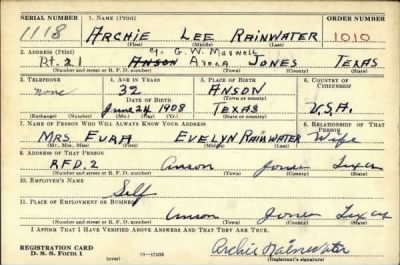 SERIAL NUMBER 1. NAME (Print) ORDER NUMBER
1118 ARCHIE LEE RAINWATER 1010
(First) (Middle) (Last)
2. ADDRESS (Print) % G. W. Maxwell
Rt. 21 ANSON AVOCA JONES TEXAS
(Number and street or R. F. D. number) (Town) (County) (State)
3. TELEPHONE 4. AGE IN YEARS 5. PLACE OF BIRTH 6. COUNTRY OF CITIZENSHIP
none 32 ANSON
DATE OF BIRTH (Town or county)
June 24 1908 TEXAS U.S.A.
(Exchange) (Number) (Mo.) (Day) (Yr.) (State or country)
7. NAME OF PERSON WHO WILL ALWAYS KNOW YOUR ADDRESS 8. RELATIONSHIP OF THAT PERSON
MRS EURA EVELYN RAINWATER Wife
(Mr., Mrs., Miss) (First) (Middle) (Last)
9. ADDRESS OF THAT PERSON
RFD. 2 Anson Jones Texas
(Number and street or R. F. D. number) (Town) (County) (State)
10. EMPLOYER'S NAME
Self
11. PLACE OF EMPLOYMENT OR BUSINESS
Anson Jones Texas
(Number and street or R. F. D. number) (Town) (County) (State)
I AFFIRM THAT I HAVE VERIFIED ABOVE ANSWERS AND THAT THEY ARE TRUE.
REGISTRATION CARD Archie Rainwater
D. S. S. Form 1 (Registrant's signature)